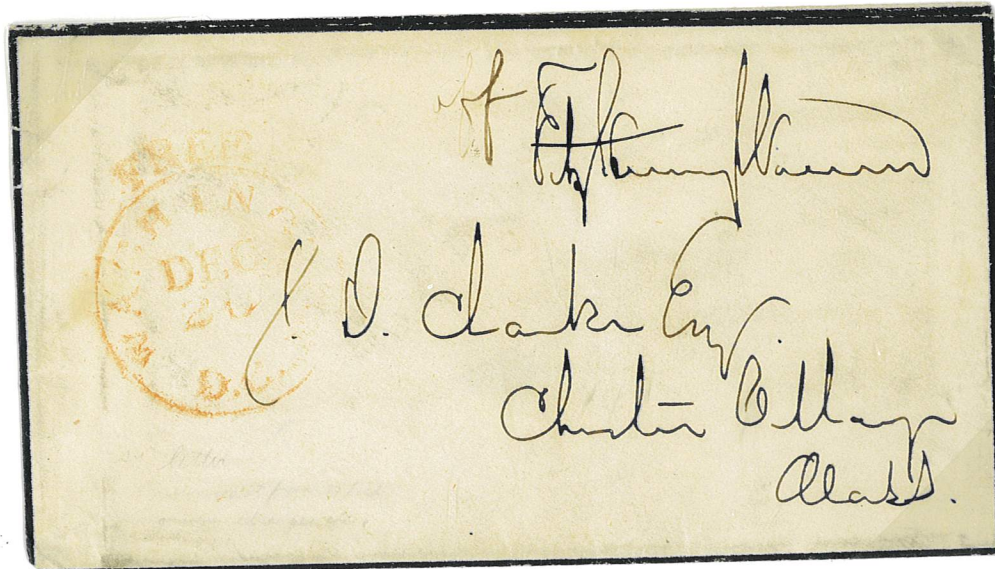 FREE
WASHINGTON D.C.
DEC
20
Fitz Henry Warren
C. D. Clarke Esq
Chester Village
Mass.